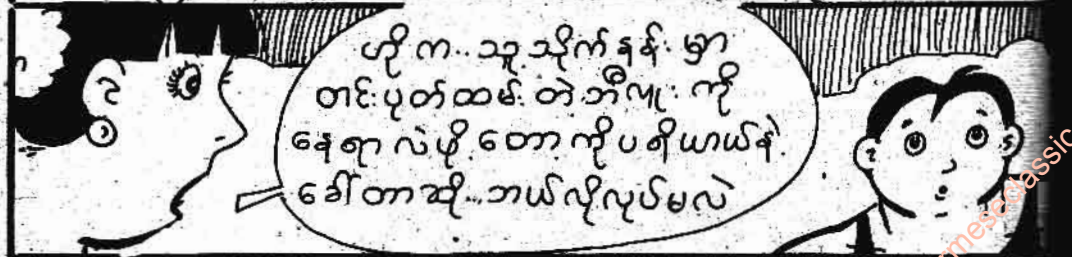 ဟိုက..သူ့သိုက်နန်းမှာ
တင်းပုတ်ထမ်းတဲ့ဘီလူးကို
နေရာလဲဖို့တော့ကိုပရိယာယ်နဲ့
ခေါ်တာဆို...ဘယ်လိုလုပ်မလဲ